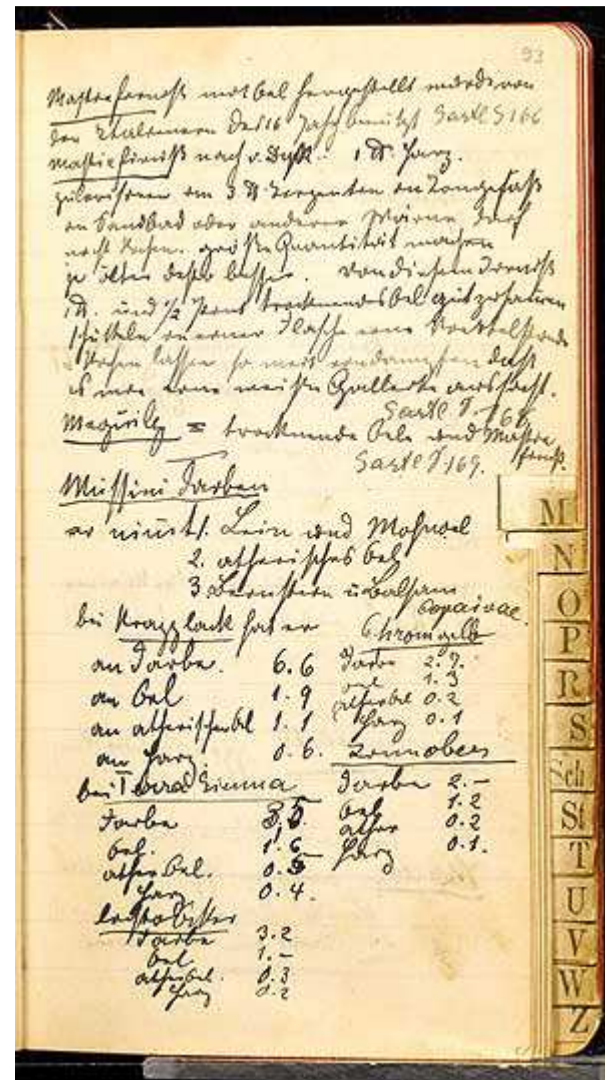 93
Mastixfirniß mit Oel hergestellt wurde von
den Italienern des 16 Jahrh benützt Gartl S 166
Mastixfirniß nach v. Dyk: 1 Th. Harz.
3 Th Terpentin in Tongefäß
im Sandbad oder anderer Wärme darf
nicht kochen. größte Quantität machen
je älter desto besser. von diesem Firniß
1 Th. und 1/2 trocknendes Oel gut zusammen
schütteln in einer Flasche eine Viertelstunde
kochen lassen so weit eindampfen daß
es wie eine weiße Gallerte aussieht.
Gartl S. 168
Megüilp = trocknende Oele und Mastix
firniß.
Gartl S 169.
Mussini Farben
er nimmt 1. Lein und Mohnoel
2. atherisches Oel
3 Bernstein u Balsam
Copaivae.
bei Krapplack hat er
an Farbe. 6.6
an Oel 1.9
an atherisches Oel 1.1
an Harz 0.6.
Chromgelb
Farbe 2.7.
Oel 1.3
ather Oel 0.2
Harz 0.1
Zinnober
Farbe 2.–
Oel 1.2
ather 0.2
Harz 0.1.
bei Terra Sienna
Farbe 3,5
Oel. 1.6
ather Oel. 0.5
Harz 0.4.
Farbe 3.2
Oel 1.–
ather Oel. 0.3
Harz 0.2
M
N
O
P
R
S
Sch
St
T
U
V
W
Z